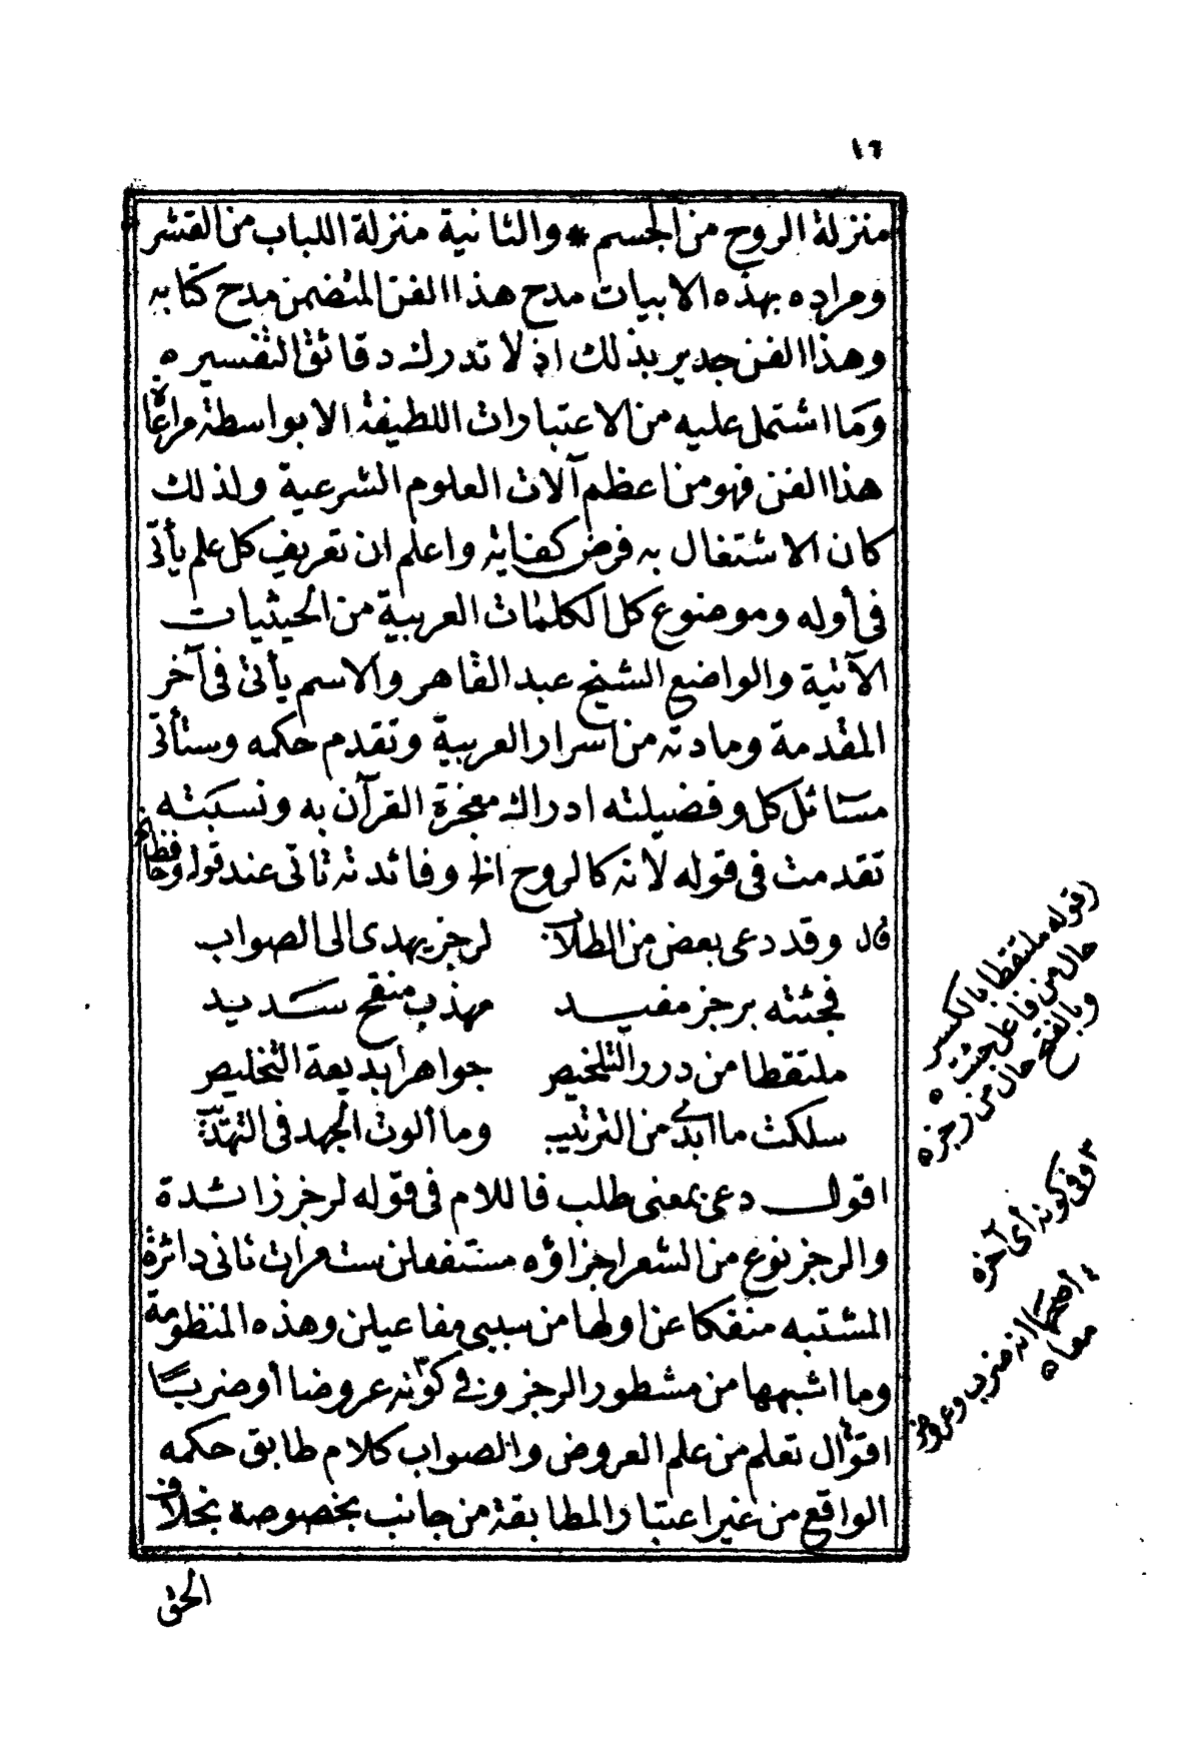 ١٦
منزلة الروح من الجسم * والثانية منزلة اللباب من القشر
ومراده بهذه الابيات مدح هذا الفن المتضمن مدح كتابه
وهذا الفن جدير بذلك اذ لا تدرك دقائق التفسيره
وما اشتمل عليه من الاعتبارات اللطيفة الا بواسطة مراعاة
هذا الفن فهو من اعظم آلات العلوم الشرعية ولذلك
كان الاشتغال به فرض كفاية واعلم ان تعريف كل علم يأتى
فى أوله وموضوع كل الكلمات العربية من الحيثيات
الآتية والواضع الشيخ عبد القاهر والاسم يأتى فى آخر
المقدمة ومادته من اسرار العربية وتقدم حكمه وستأتى
مسائل كل وفضيلته ادراك معجزة القرآن به ونسبته
تقدمت فى قوله لانه كالروح الخ وفائدته تاتى عند قوله وحافظ
قال وقد دعى بعض من الطلاب لرجز يهدى الى الصواب
فجئته برجز مفيد مهذب منقح سديد
ملتقطا من درر التلخيص جواهرا بديعة التخليص
سلكت ما ابدى من الترتيب وما ألوت الجهد فى التهذيب
اقول دعى بمعنى طلب فاللام فى قوله لرجز زائدة
والرجز نوع من الشعر اجزاؤه مستفعلن ست مرات ثانى دائرة
المشتبه منفكا عن اولها من سببى مفاعيلن وهذه المنظومة
وما اشبهها من مشطور الرجز وفى كونه عروضا أو ضربا
اقوال تعلم من علم العروض والصواب كلام طابق حكمه
الواقع من غير اعتبار المطابقة من جانب بخصوصه بخلاف
الحق
(قوله ملتقطا بالكسر
حال من فاعل جئت ه
وبالفتح حال من رجزه
٣ وفى كونه أى آخره
٤ أصحها انه ضرب وعروض
معا ه